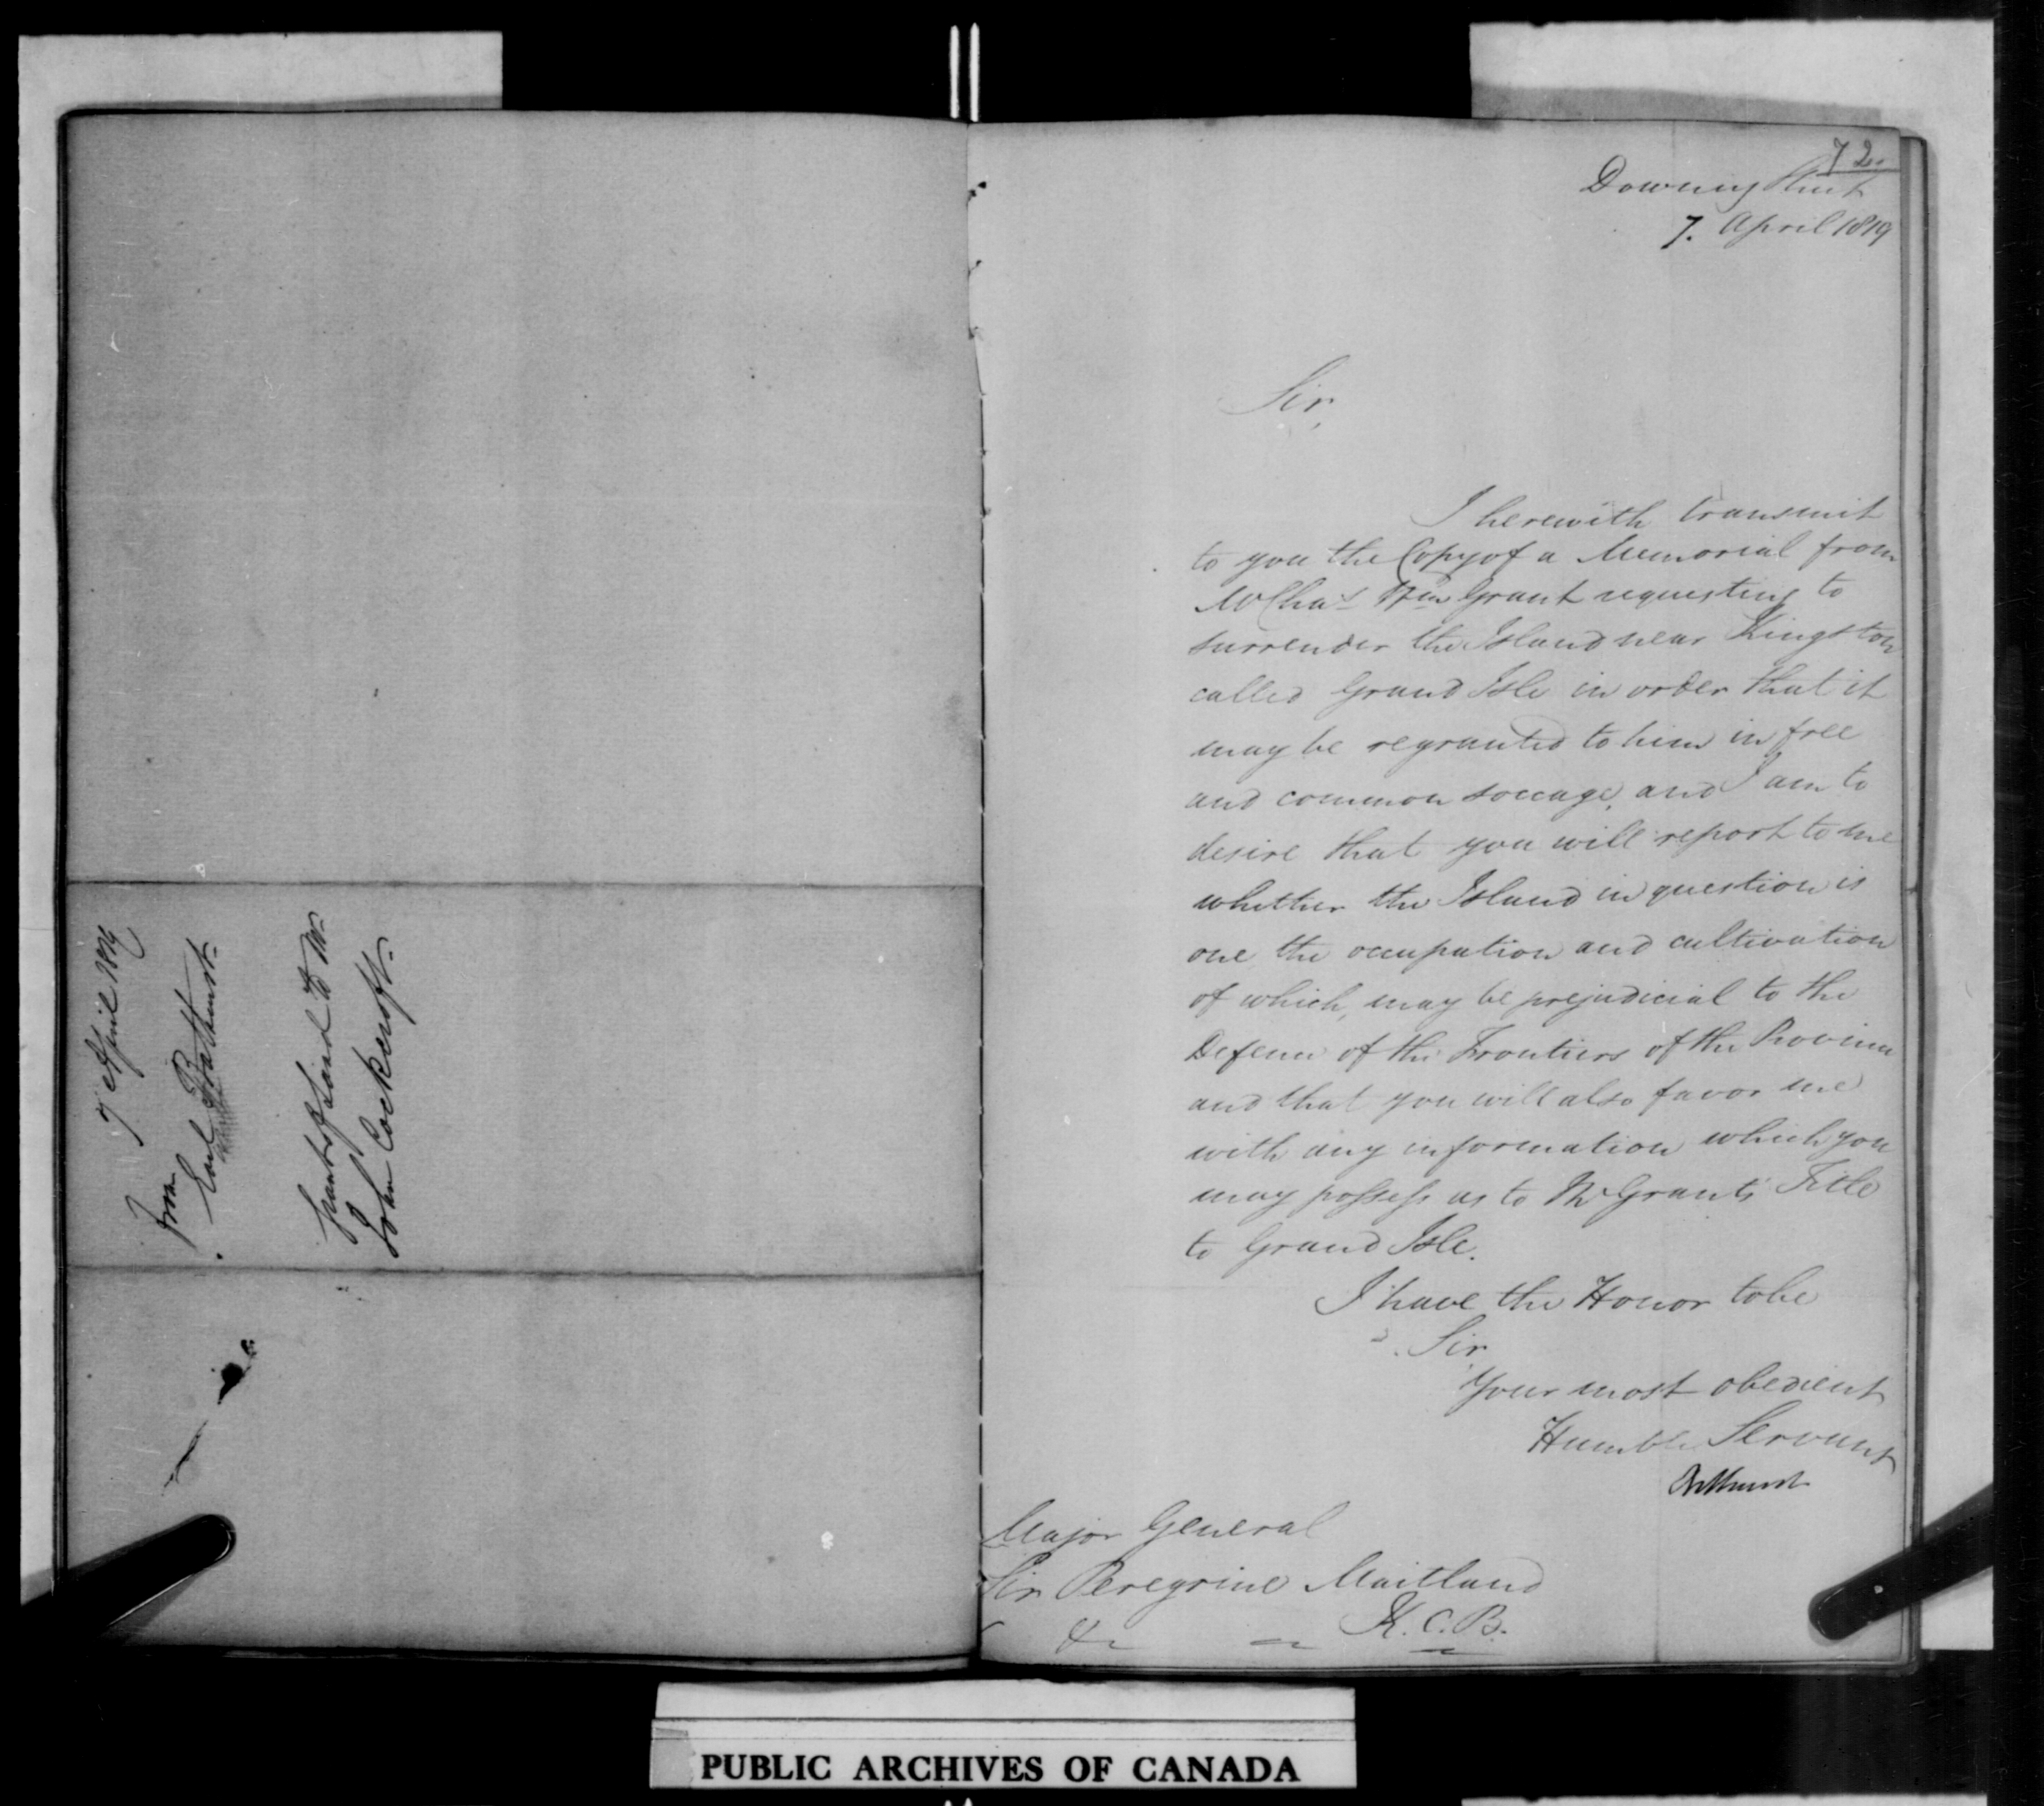 7 April 1819
From
Earl Bathurst
Grant of Land to Mr
John Cockcroft
72.
Downing Street
7. April 1819
Sir,
I herewith transmit
to you the Copy of a Memorial from
Mr Chas Wm Grant requesting to
surrender the Island near Kingston
called Grand Isle in order that it
may be regranted to him in free
and common soccage, and I am to
desire that you will report to me
whether the Island in question is
one the occupation and cultivation
of which, may be prejudicial to the
Defence of the Frontiers of the Province
and that you will also favor me
with any information which you
may possess as to Mr Grant's Title
to Grand Isle.
I have the Honor to be
Sir
Your most obedient
Humble Servant
Bathurst
Major General
Sir Peregrine Maitland
K.C.B.
&c
PUBLIC ARCHIVES OF CANADA